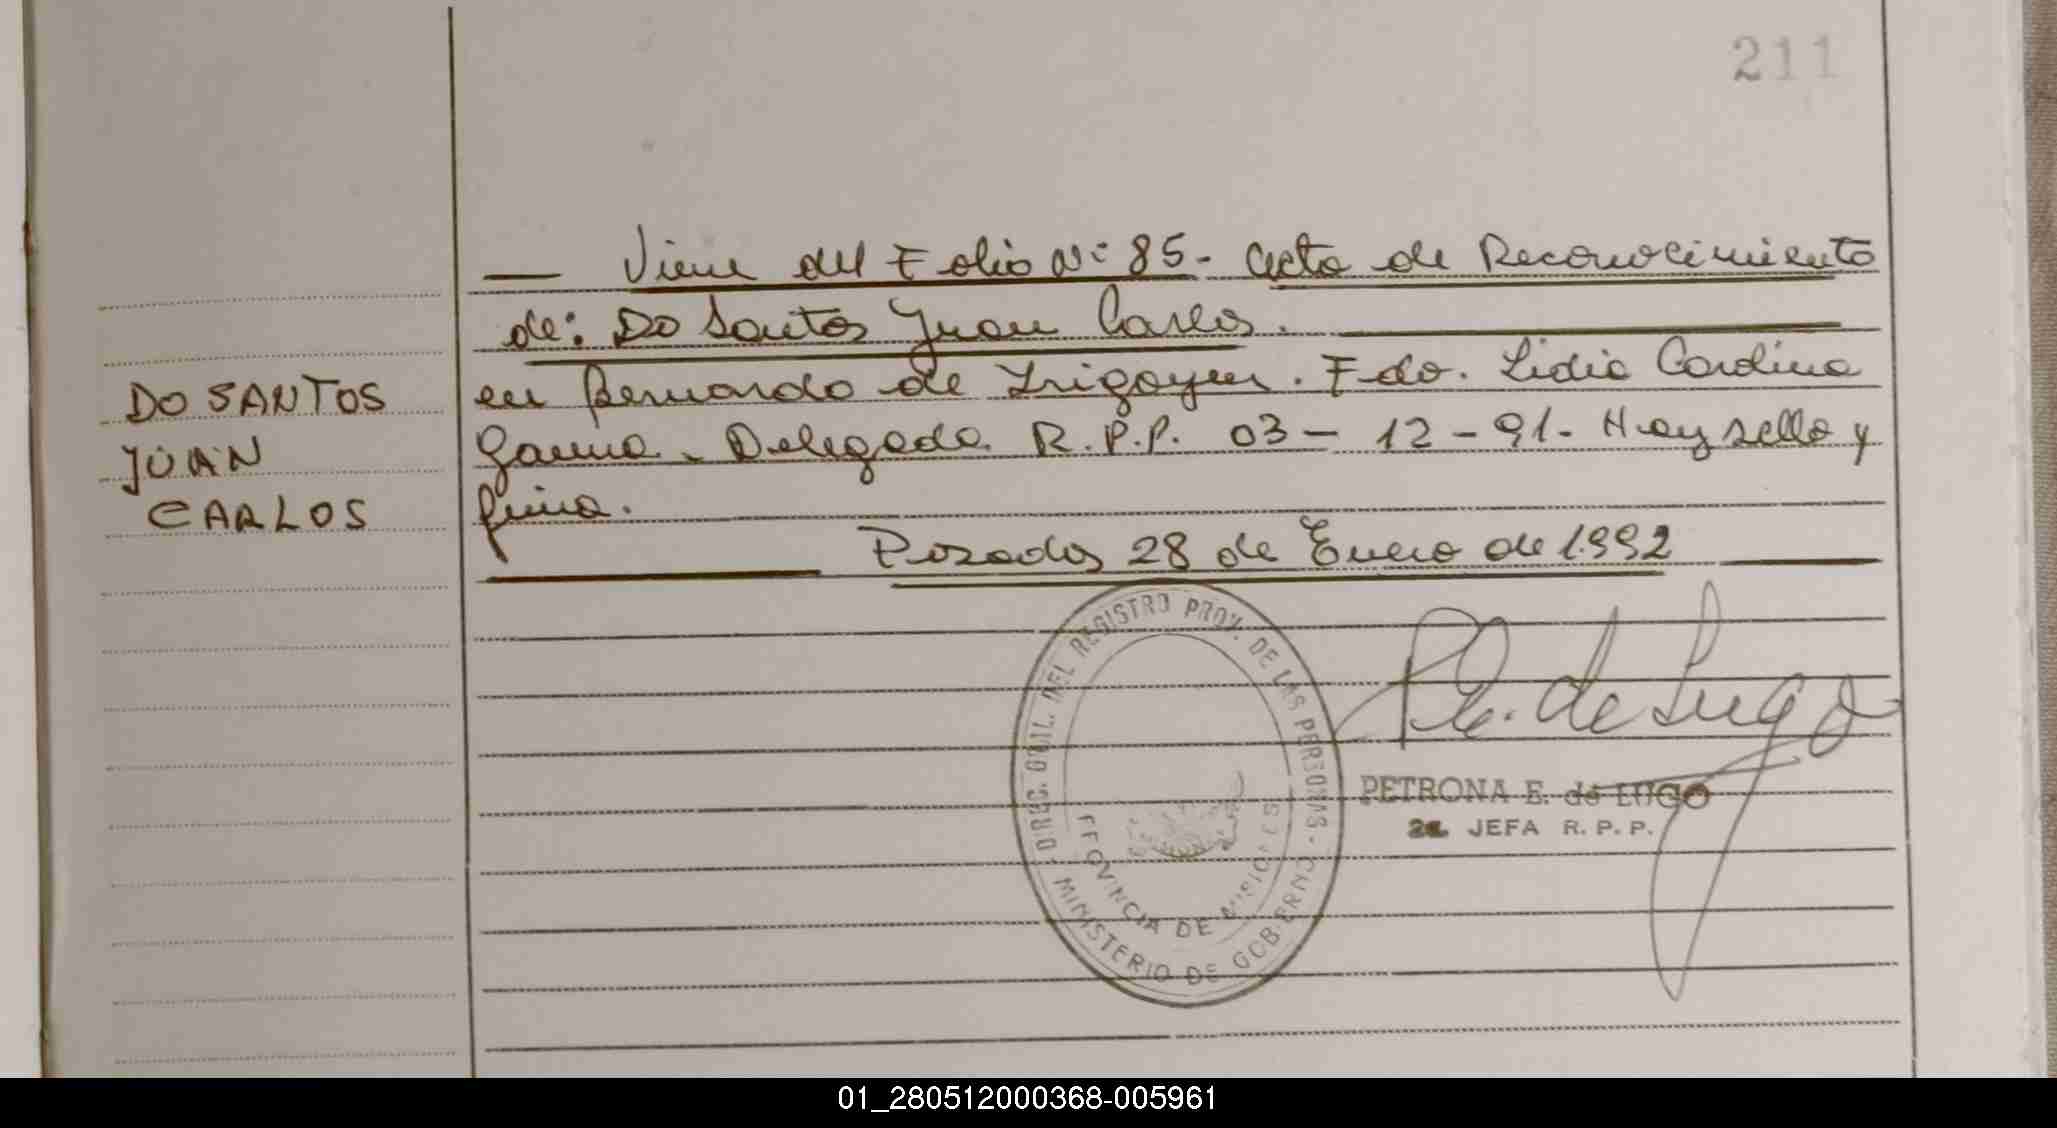 211
— Viene del Folio Nº 85 - Acta de Reconocimiento
de: Do Santos Juan Carlos.
DO SANTOS
en Bernardo de Irigoyen. Fdo. Lidia Carolina
JUAN
Gauna - Delegada R.P.P. 03 - 12 - 91 - Hay sello y
CARLOS
firma.
Posadas 28 de Enero de 1992
DIREC. GRAL. DEL REGISTRO PROV. DE LAS PERSONAS -
MINISTERIO DE GOBIERNO
PROVINCIA DE MISIONES
P. E. de Lugo
PETRONA E. de LUGO
2a. JEFA R. P. P.
01_280512000368-005961